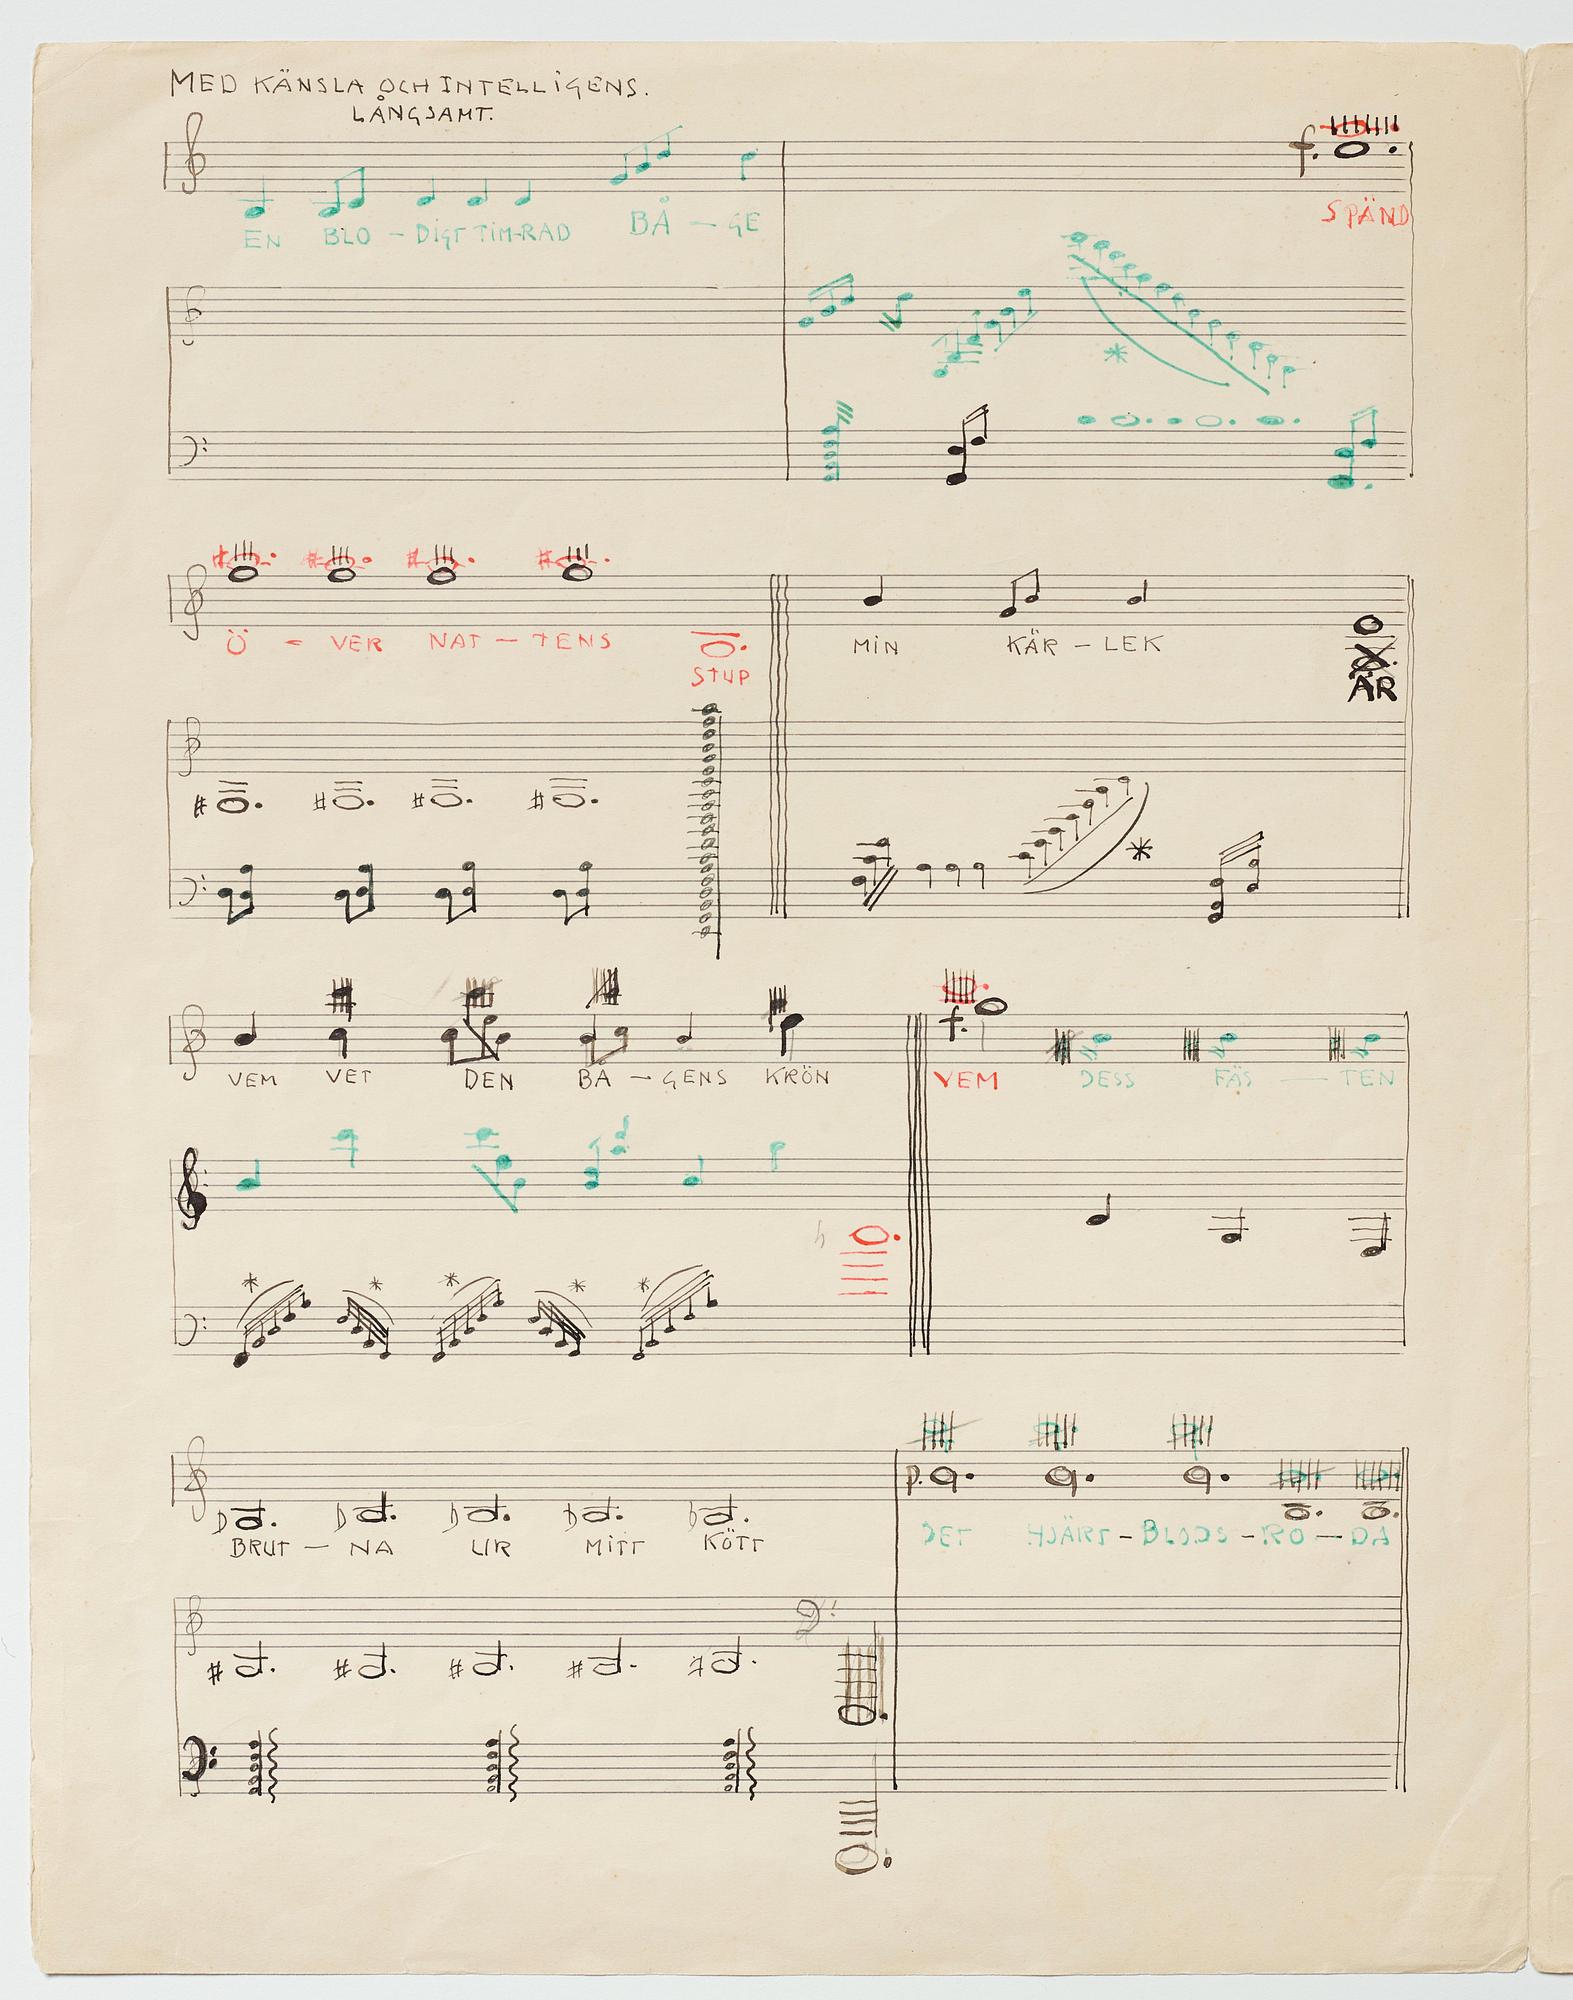 MED KÄNSLA OCH INTELLIGENS.
LÅNGSAMT.
f.
EN BLO - DIGT TIM-RAD BÅ - GE SPÄND
Ö - VER NAT - TENS STUP MIN KÄR - LEK ÄR
f.
VEM VET DEN BÅ - GENS KRÖN VEM DESS FÄS - TEN
p.
BRUT - NA UR MITT KÖTT DET HJÄRT - BLODS - RO - DA